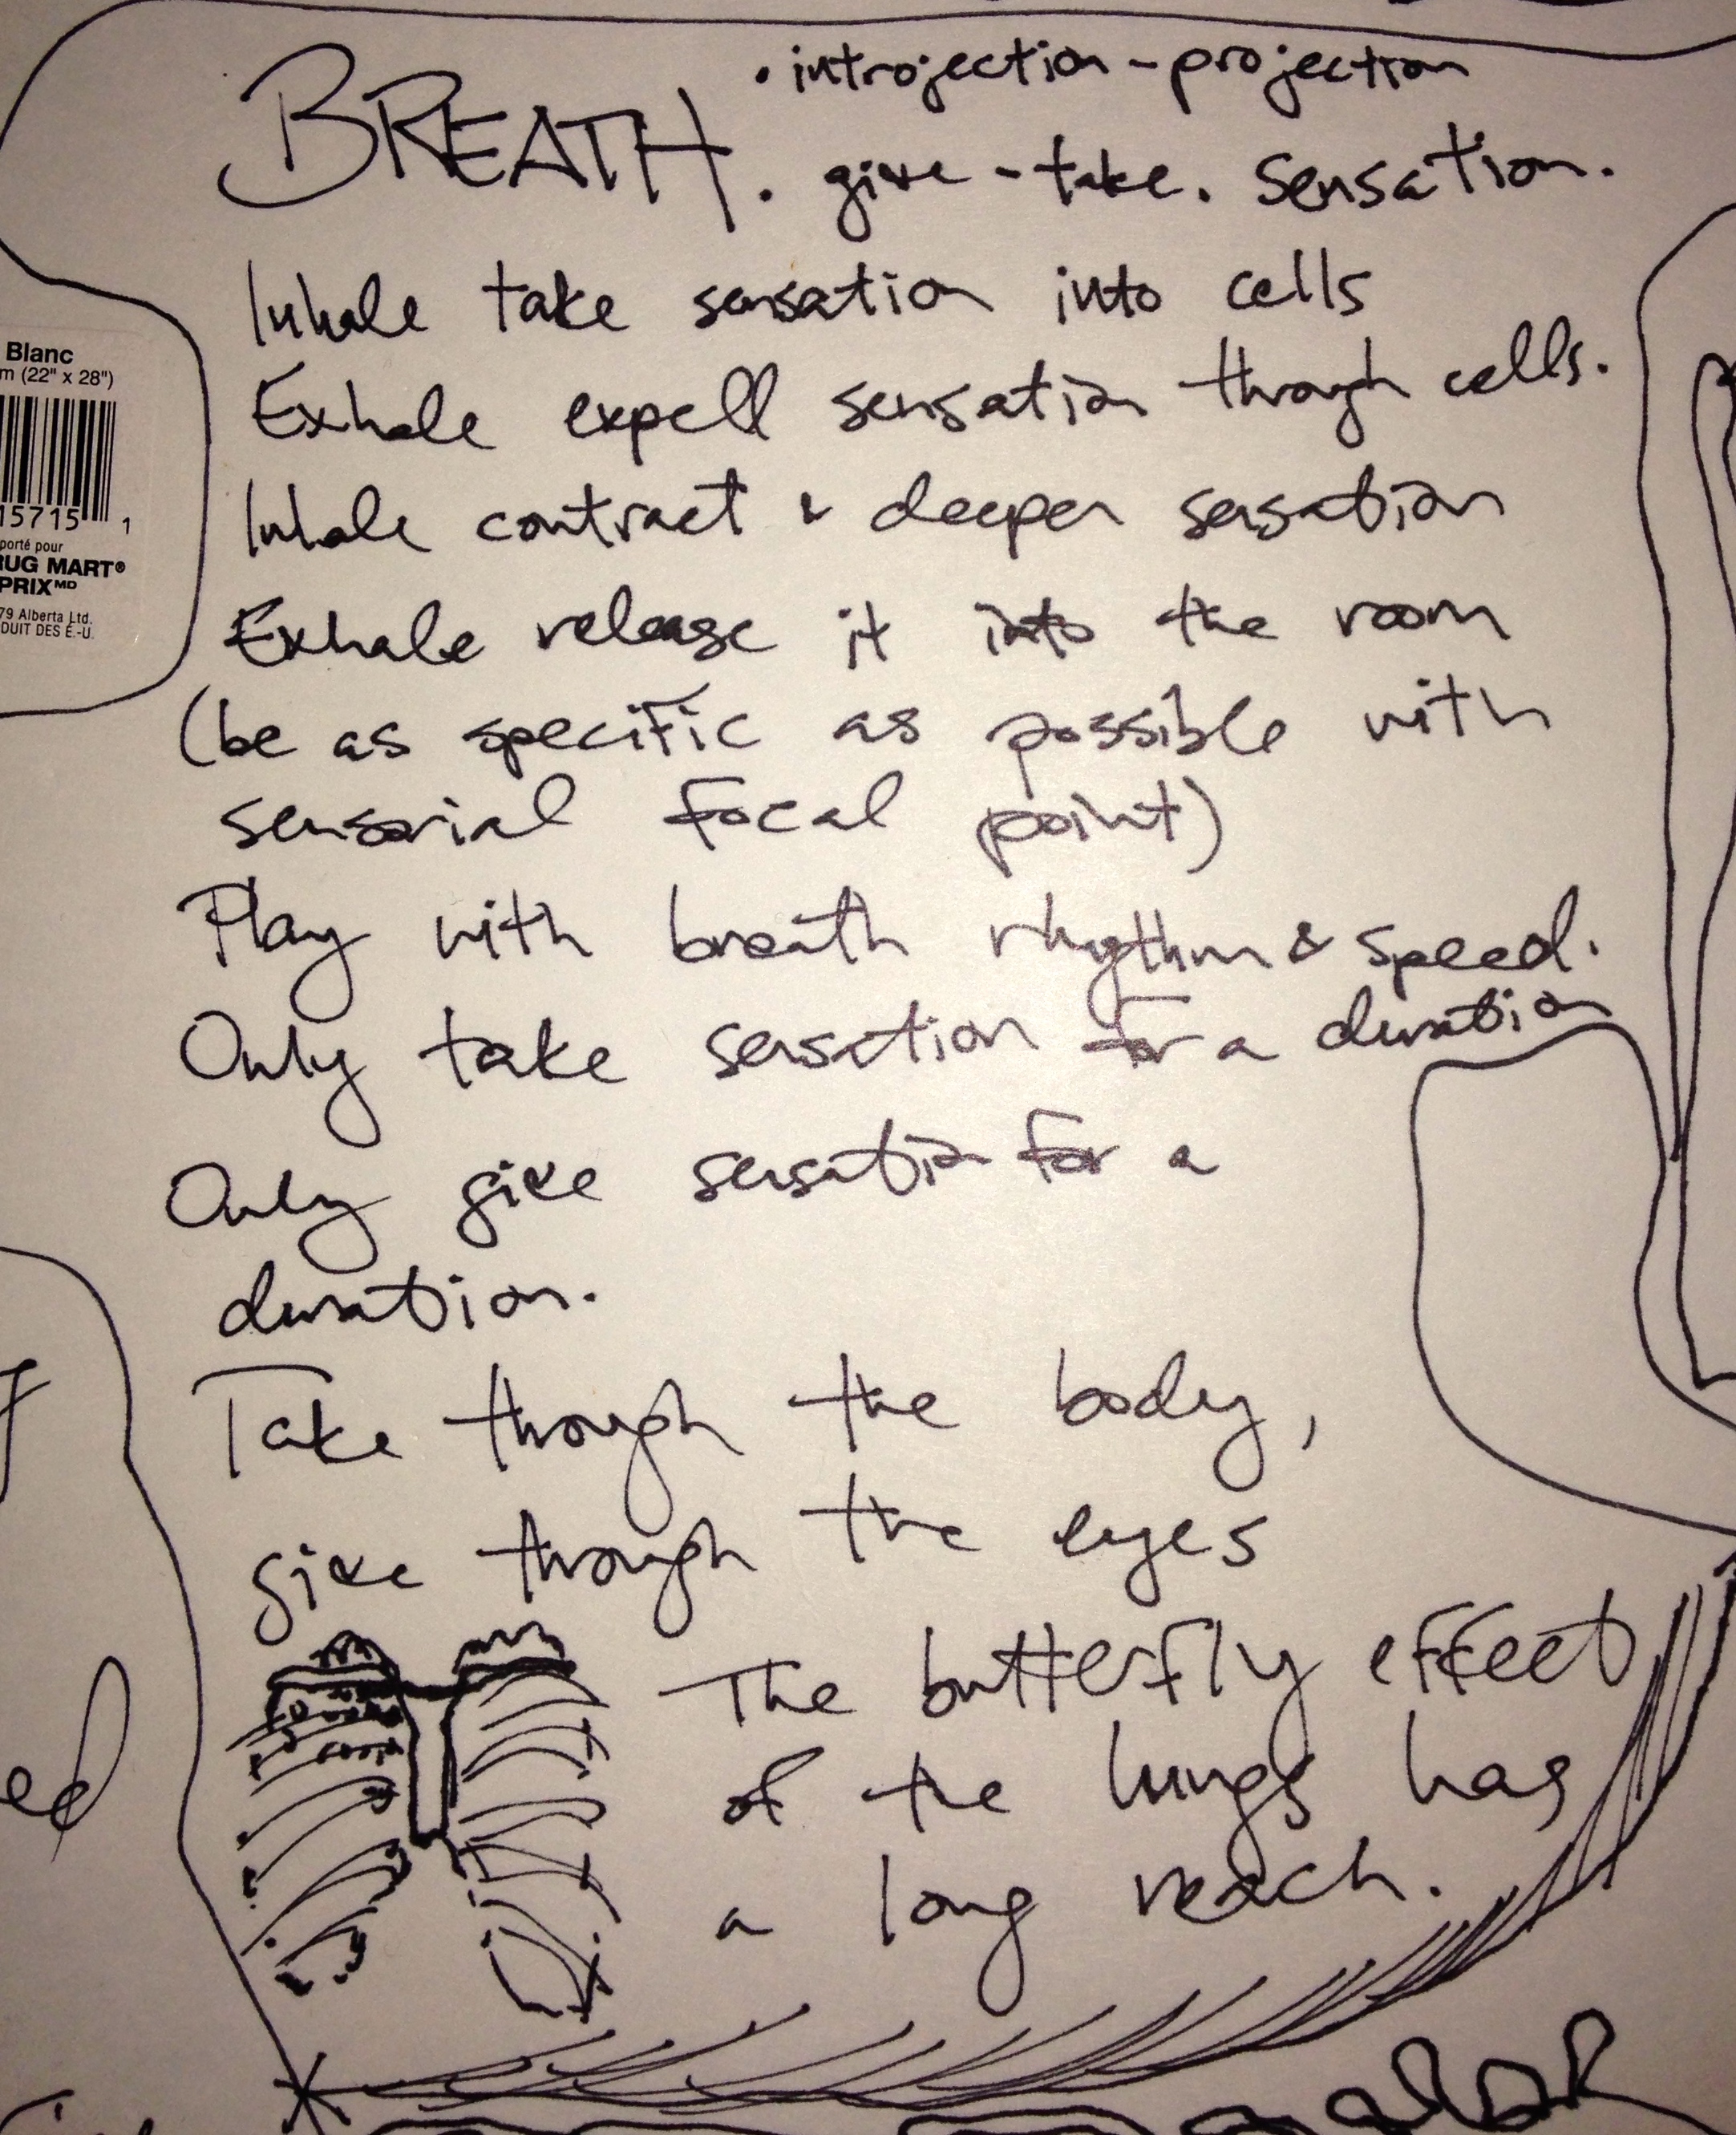 • introjection - projection
BREATH. give - take. Sensation.
Inhale take sensation into cells
Exhale expell sensation through cells.
Inhale contract & deepen sensation
Exhale release it into the room
(be as specific as possible with
sensorial focal point)
Play with breath rhythm & speed.
Only take sensation for a duration
Only give sensation for a
duration.
Take through the body,
give through the eyes
The butterfly effect
of the lungs has
a long reach.
Blanc
m (22" x 28")
15715 1
porté pour
RUG MART®
PRIX MD
79 Alberta Ltd.
DUIT DES É.-U.
ed